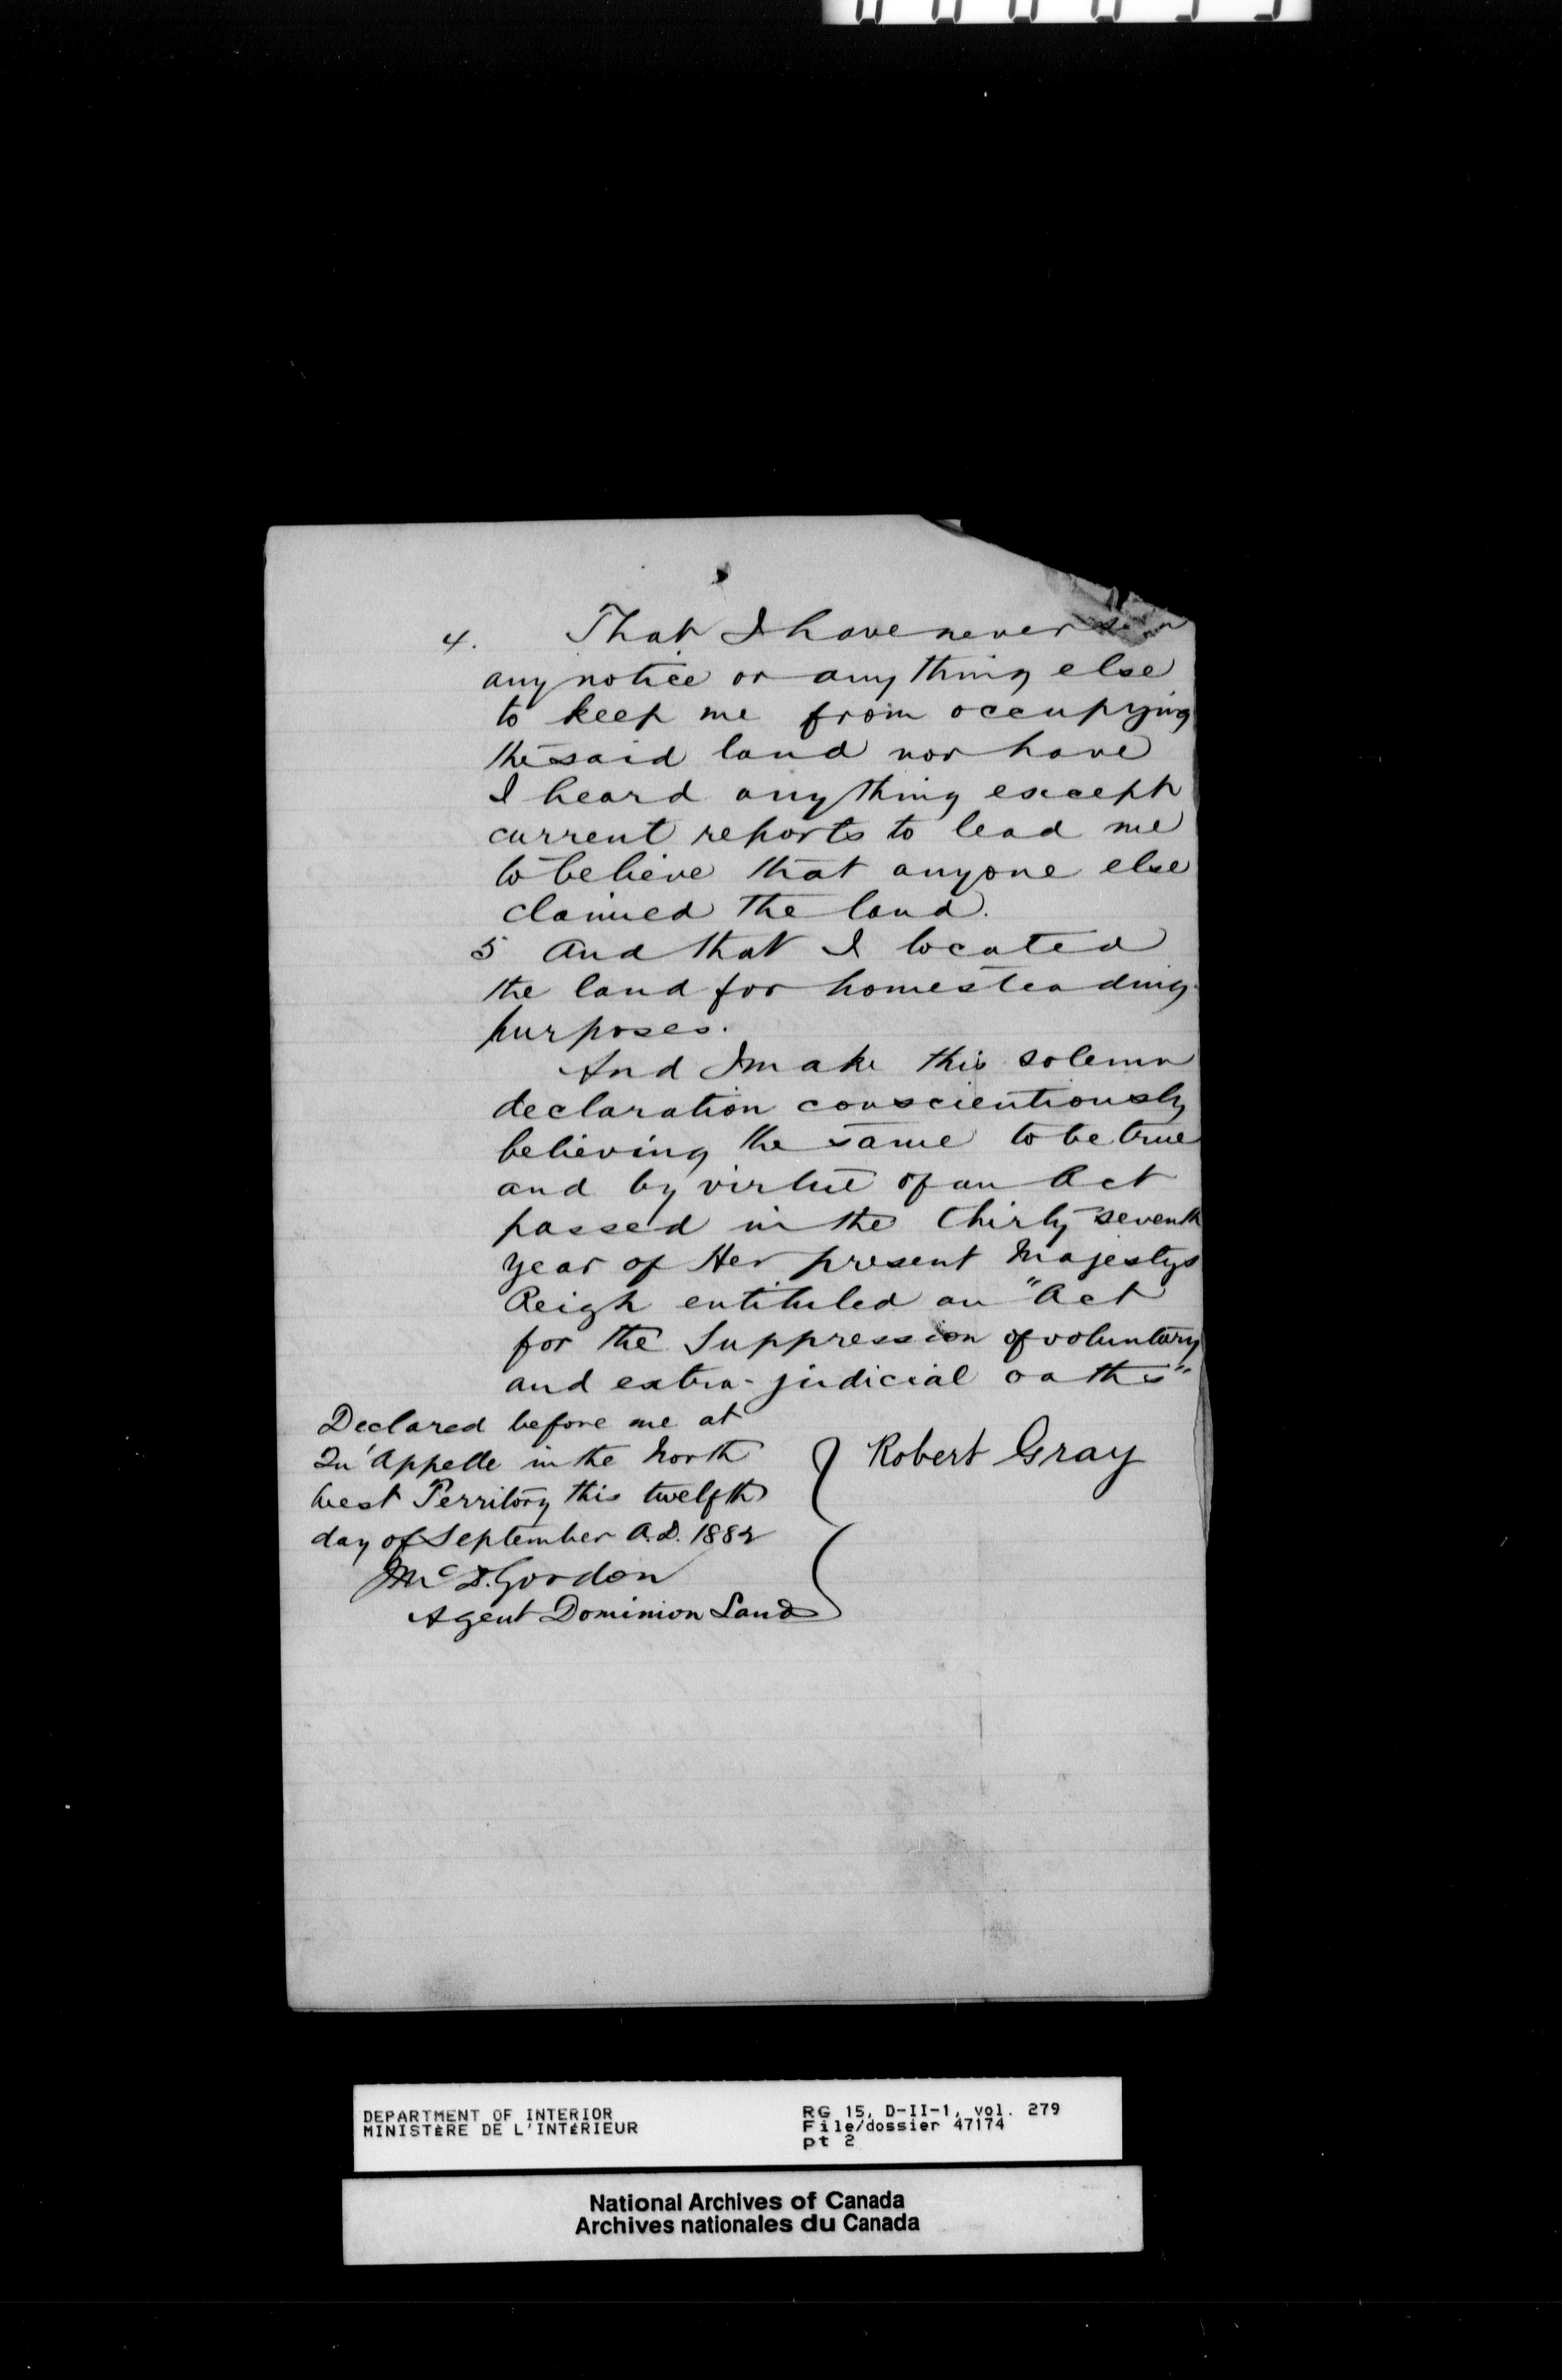 4. That I have never seen
any notice or any thing else
to keep me from occupying
the said land nor have
I heard any thing except
current reports to lead me
to believe that anyone else
claimed the land.
5 And that I located
the land for homesteading
purposes.
And I make this solemn
declaration conscientiously
believing the same to be true
and by virtue of an Act
passed in the thirty seventh
year of Her present Majestys
Reigh entituled an "Act
for the Suppression of voluntary
and extra-judicial oaths"
Declared before me at
Qu'Appelle in the North
West Territory this twelfth
day of September A.D. 1882
Robert Gray
McD. Gordon
Agent Dominion Lands
DEPARTMENT OF INTERIOR
MINISTÈRE DE L'INTÉRIEUR
RG 15, D-II-1, vol. 279
File/dossier 47174
pt 2
National Archives of Canada
Archives nationales du Canada